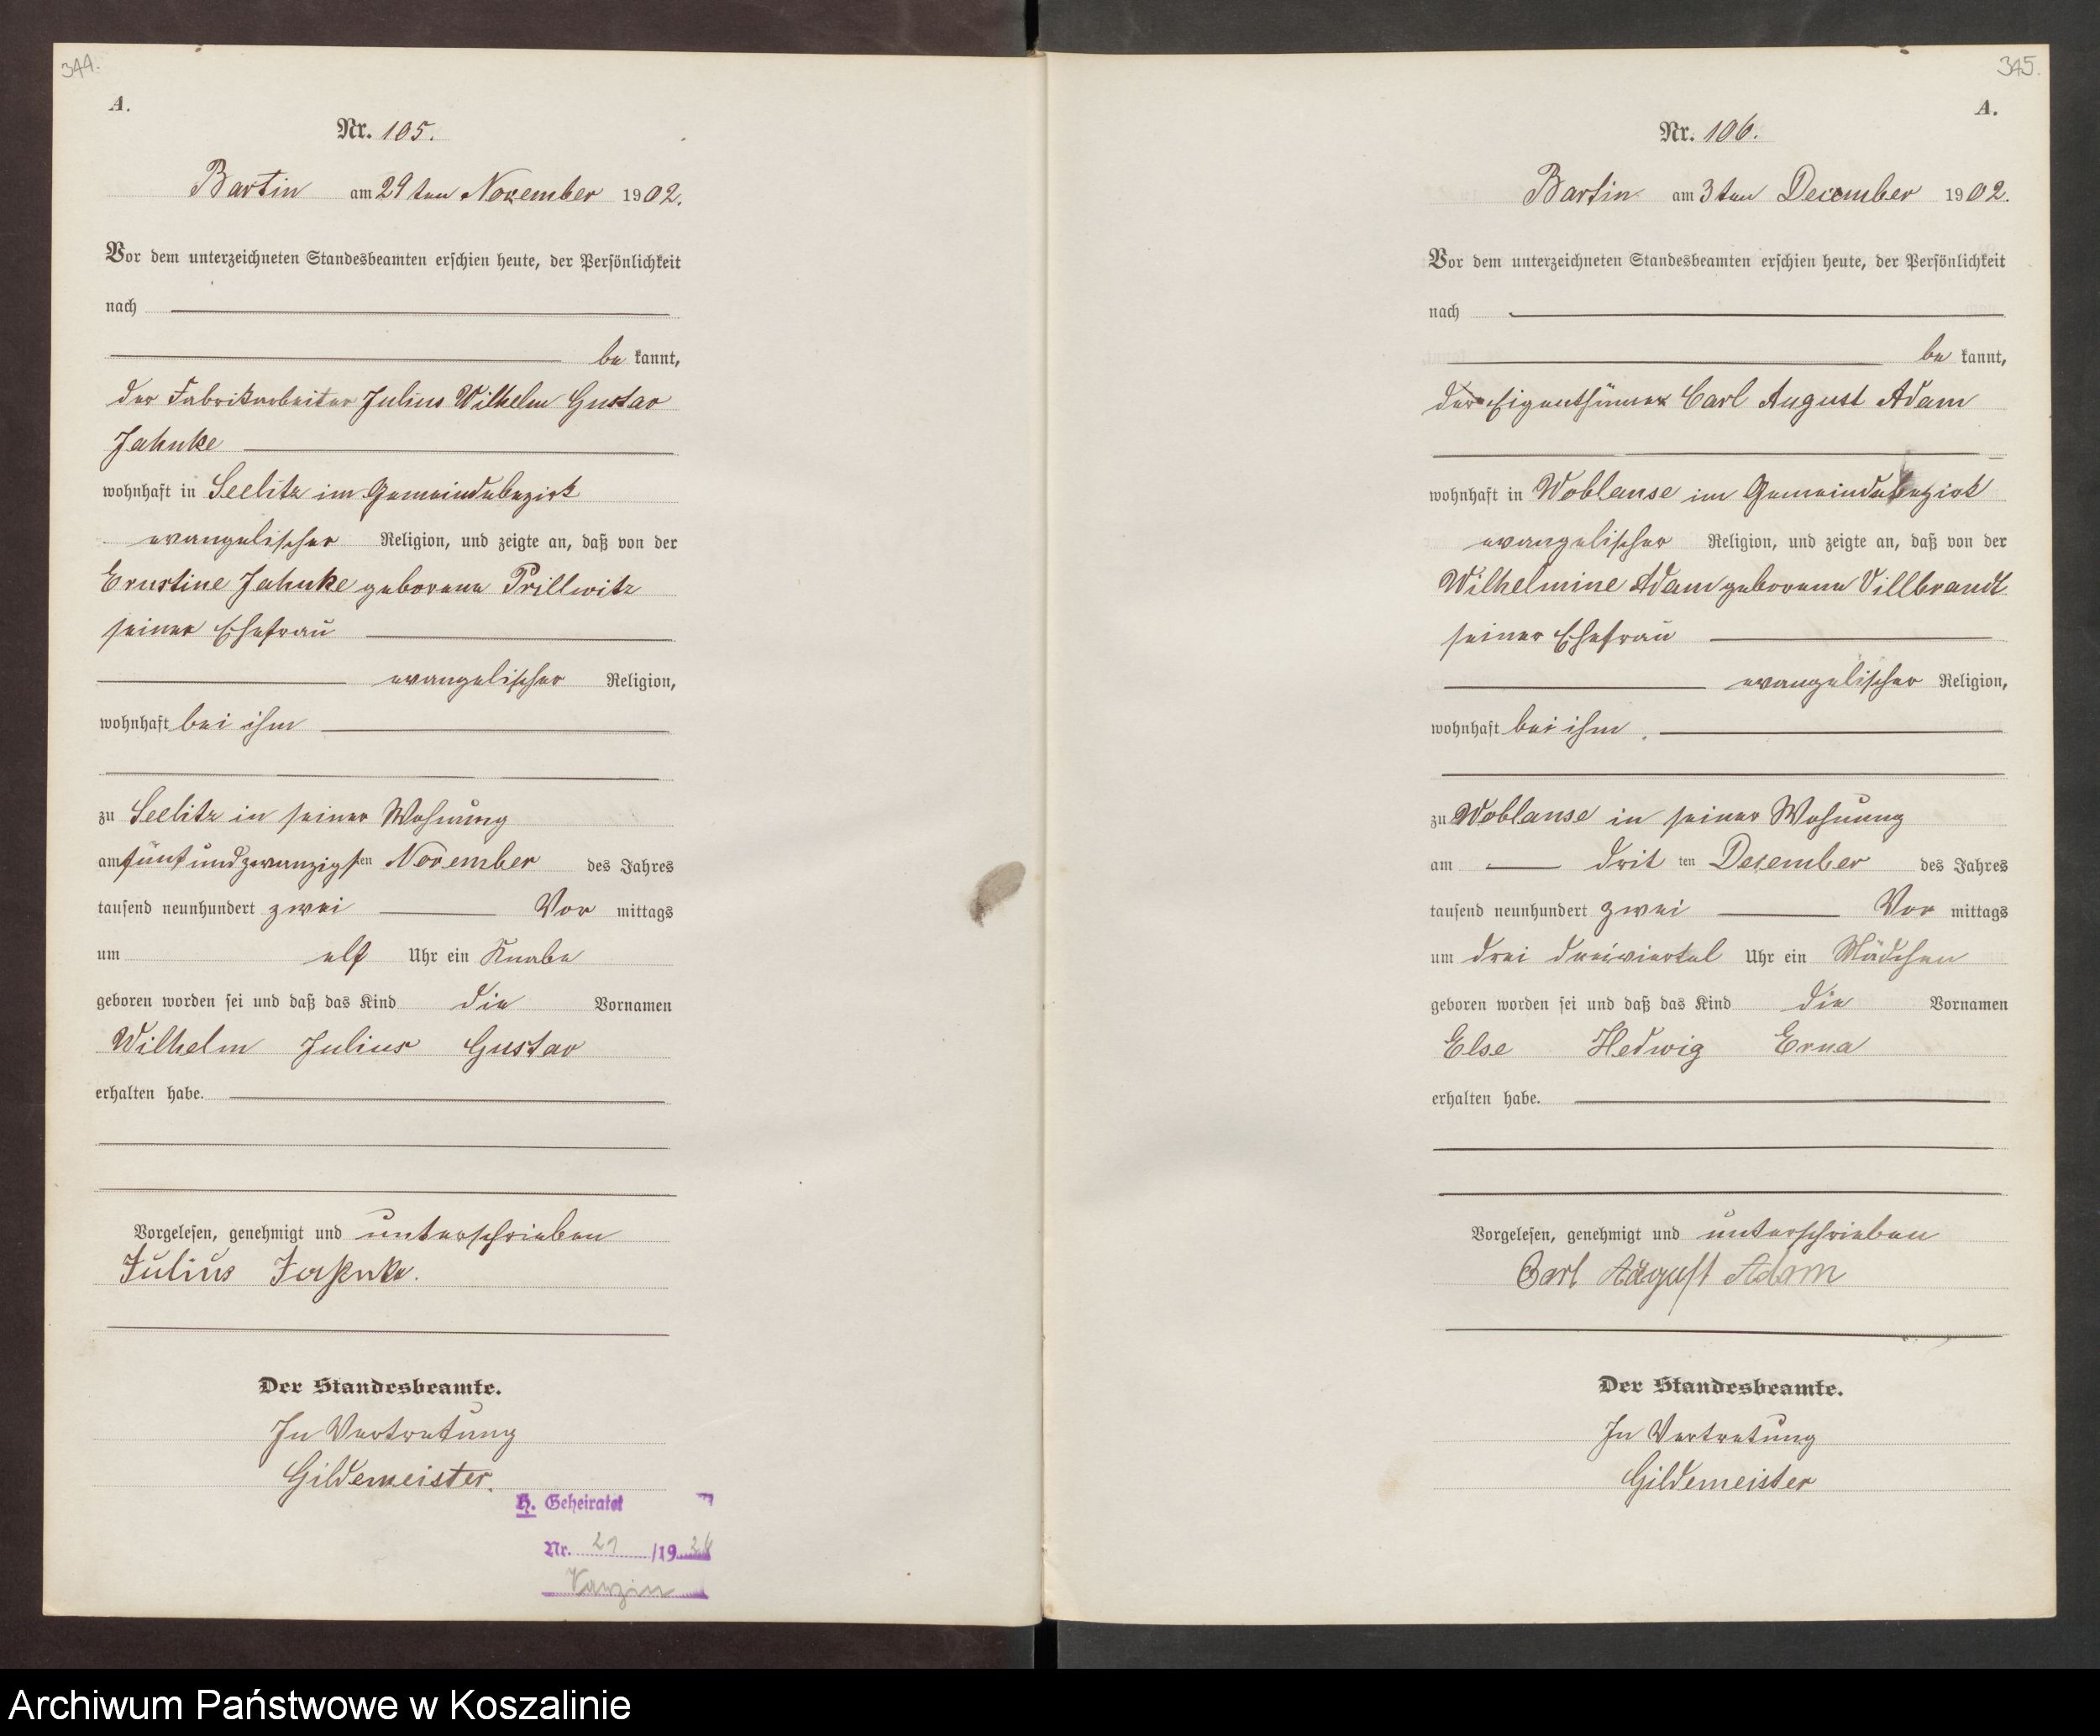 344.
A.
Nr. 105.
Bartin am 29ten November 1902.
Vor dem unterzeichneten Standesbeamten erschien heute, der Persönlichkeit
nach
be kannt,
der Fabrikarbeiter Julius Wilhelm Gustav
Jahnke
wohnhaft in Seelitz im Gemeindebezirk
evangelischer Religion, und zeigte an, daß von der
Ernestine Jahnke geborene Prillwitz
seiner Ehefrau
evangelischer Religion,
wohnhaft bei ihm
zu Seelitz in seiner Wohnung
am fünfundzwanzigsten November des Jahres
tausend neunhundert zwei Vor mittags
um elf Uhr ein Knabe
geboren worden sei und daß das Kind die Vornamen
Wilhelm Julius Gustav
erhalten habe.
Vorgelesen, genehmigt und unterschrieben
Julius Jahnke.
Der Standesbeamte.
In Vertretung
Gildemeister.
H. Geheiratet
Nr. 21 /19
Varzin
345.
A.
Nr. 106.
Bartin am 3ten December 1902.
Vor dem unterzeichneten Standesbeamten erschien heute, der Persönlichkeit
nach
be kannt,
der Eigenthümer Carl August Adam
wohnhaft in Woblanse im Gemeindebezirk
evangelischer Religion, und zeigte an, daß von der
Wilhelmine Adam geborene Villbrandt
seiner Ehefrau
evangelischer Religion,
wohnhaft bei ihm.
zu Woblanse in seiner Wohnung
am drit ten Dezember des Jahres
tausend neunhundert zwei Vor mittags
um drei dreiviertel Uhr ein Mädchen
geboren worden sei und daß das Kind die Vornamen
Else Hedwig Erna
erhalten habe.
Vorgelesen, genehmigt und unterschrieben
Carl August Adam
Der Standesbeamte.
In Vertretung
Gildemeister
Archiwum Państwowe w Koszalinie